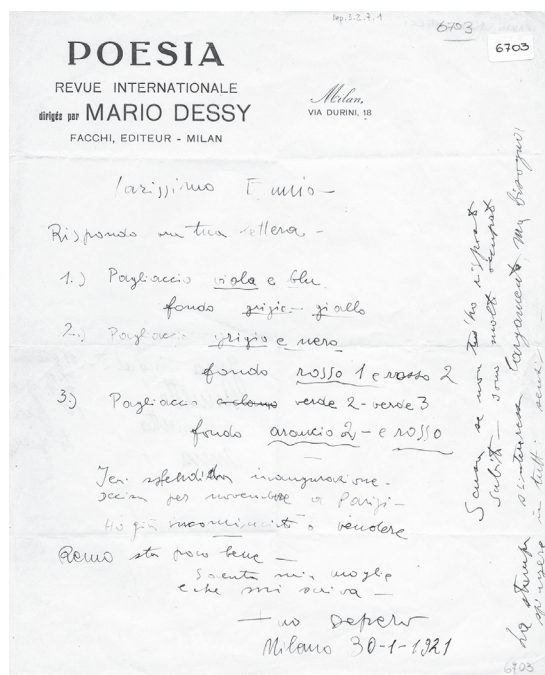 Dep. 3.2.7.1
6703
6703
POESIA
REVUE INTERNATIONALE
dirigée par MARIO DESSY
FACCHI, EDITEUR - MILAN
Milan,
VIA DURINI, 18
Carissimo
Rispondo tua lettera -
1.) Pagliaccio viola e blu
fondo grigio - giallo
2.) Pagliaccio grigio e nero
fondo rosso 1 e rosso 2
3.) Pagliaccio verde 2 - verde 3
fondo arancio 2 - e rosso
Ieri splendida inaugurazione.
per novembre a Parigi -
Ho già incominciato a vendere
Remo sta poco bene -
mia moglie
e che mi scriva -
tuo Depero
Milano 30-1-1921
Scusa se non ti ho risposto
subito - sono molto occupato
La stampa s'interessa largamente, ma bisogna
spingere in tutti i sensi -
6703